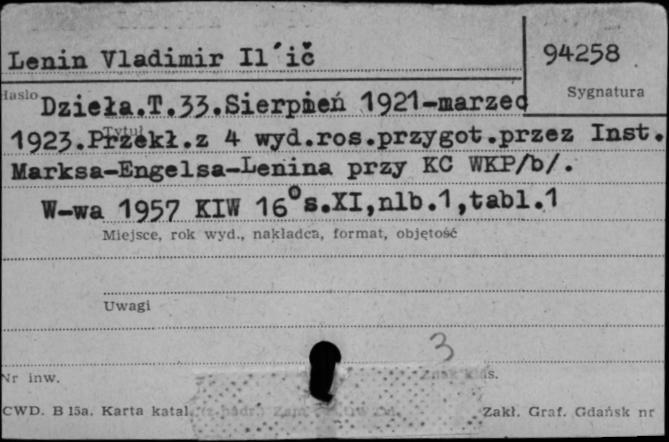 Lenin Vladimir Il´ič
94258
Hasło
Sygnatura
Dzieła.T.33.Sierpień 1921-marzec
Tytuł
1923.Przekł.z 4 wyd.ros.przygot.przez Inst.
Marksa-Engelsa-Lenina przy KC WKP/b/.
W-wa 1957 KIW 16°s.XI,nlb.1,tabl.1
Miejsce, rok wyd., nakładca, format, objętość
Uwagi
3
Nr inw.
CWD. B 15a. Karta katal.
Zakł. Graf. Gdańsk nr